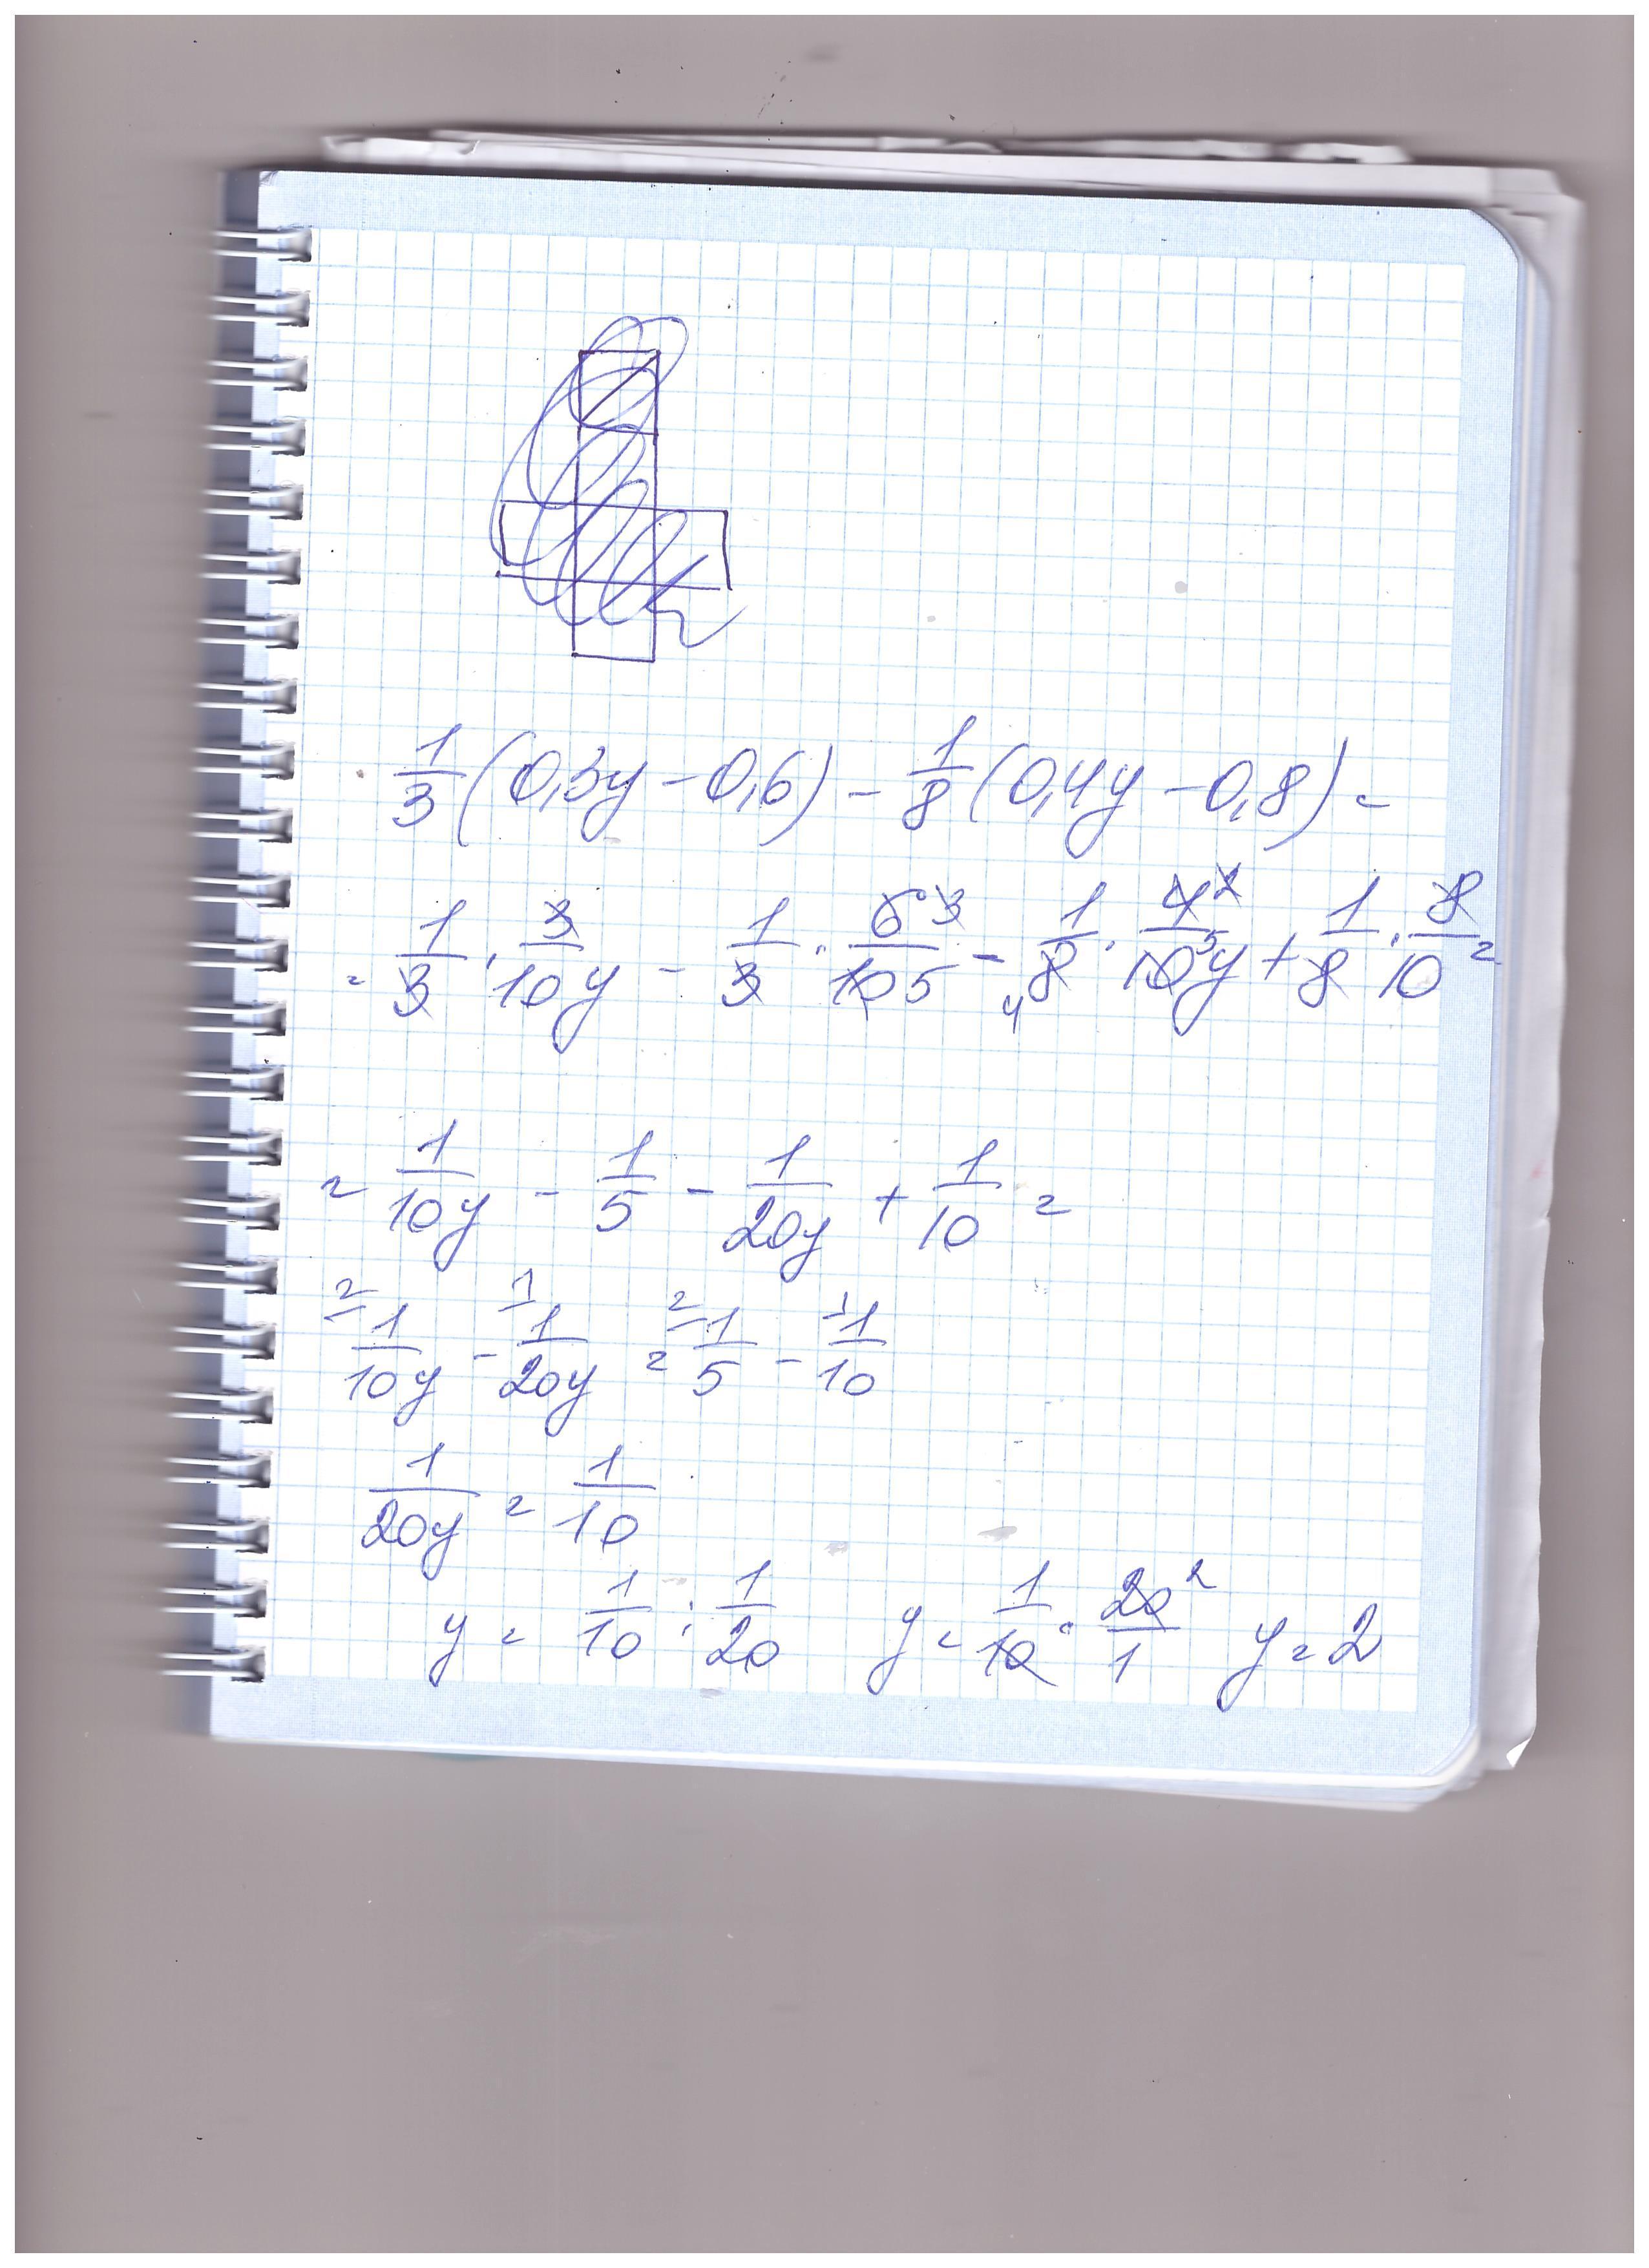 1/3 (0,3y - 0,6) - 1/8 (0,4y - 0,8) =
= 1/3 · 3/10y - 1/3 · 6 3/10 5 - 1/8 4 · 4 2/10 5y + 1/8 · 8/10 =
= 1/10y - 1/5 - 1/20y + 1/10 =
2 1/10y - 1 1/20y = 2 1/5 - 1 1/10
1/20y = 1/10
y = 1/10 : 1/20 y = 1/10 · 20 2/1 y = 2